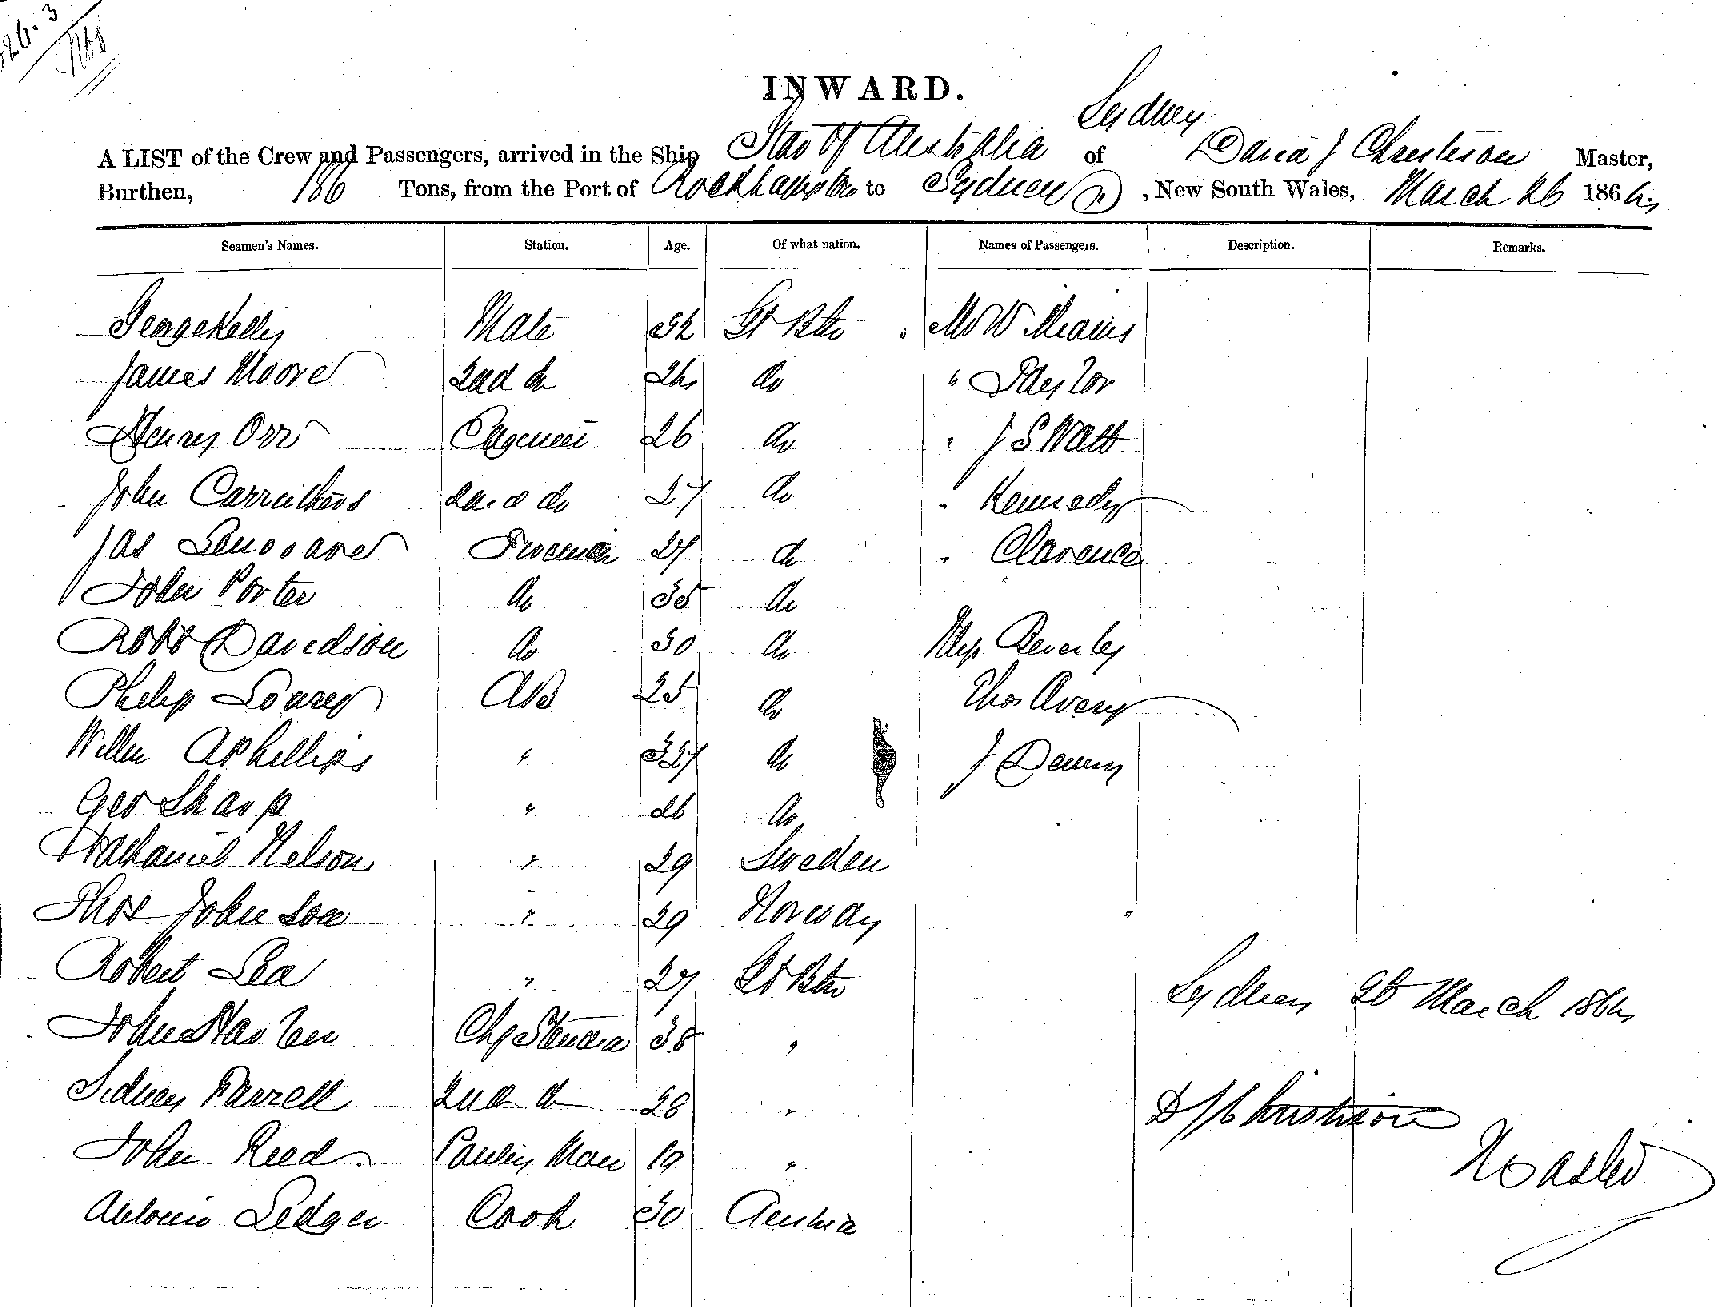 INWARD.
Sydney
A LIST of the Crew and Passengers, arrived in the Ship Star of Australia of David J Christison Master,
Burthen, 186 Tons, from the Port of Rockhampton to Sydney, New South Wales, March 26 1864
Seamen's Names. Station. Age. Of what nation. Names of Passengers. Description. Remarks.
George Kelly Mate 32 Gt Btn Mr Williams
James Moore 2nd do 24 do " Taylor
Henry Orr Engineer 26 do " J S Watt
John Carruthers 2nd do 27 do " Kennedy
Jas Fireman 27 do " Clarence
John Porter do 35 do
Robt Davidson do 30 do Miss Beverley
Philip AB 25 do Thos Avery
Willm A Phillips " 27 do J
Geo Sharp " 26 do
Nathaniel Nelson " 29 Sweden
Thos Johnson " 29 Norway
Robert Lea " 27 Gt Btn
Sydney 26 March 1864
John Chf Steward 38 "
Sidney Farrell 2nd do 28 "
D J Christison
John Reed Pantry Man 19 "
Master
Antonio Ledger Cook 30 Austria